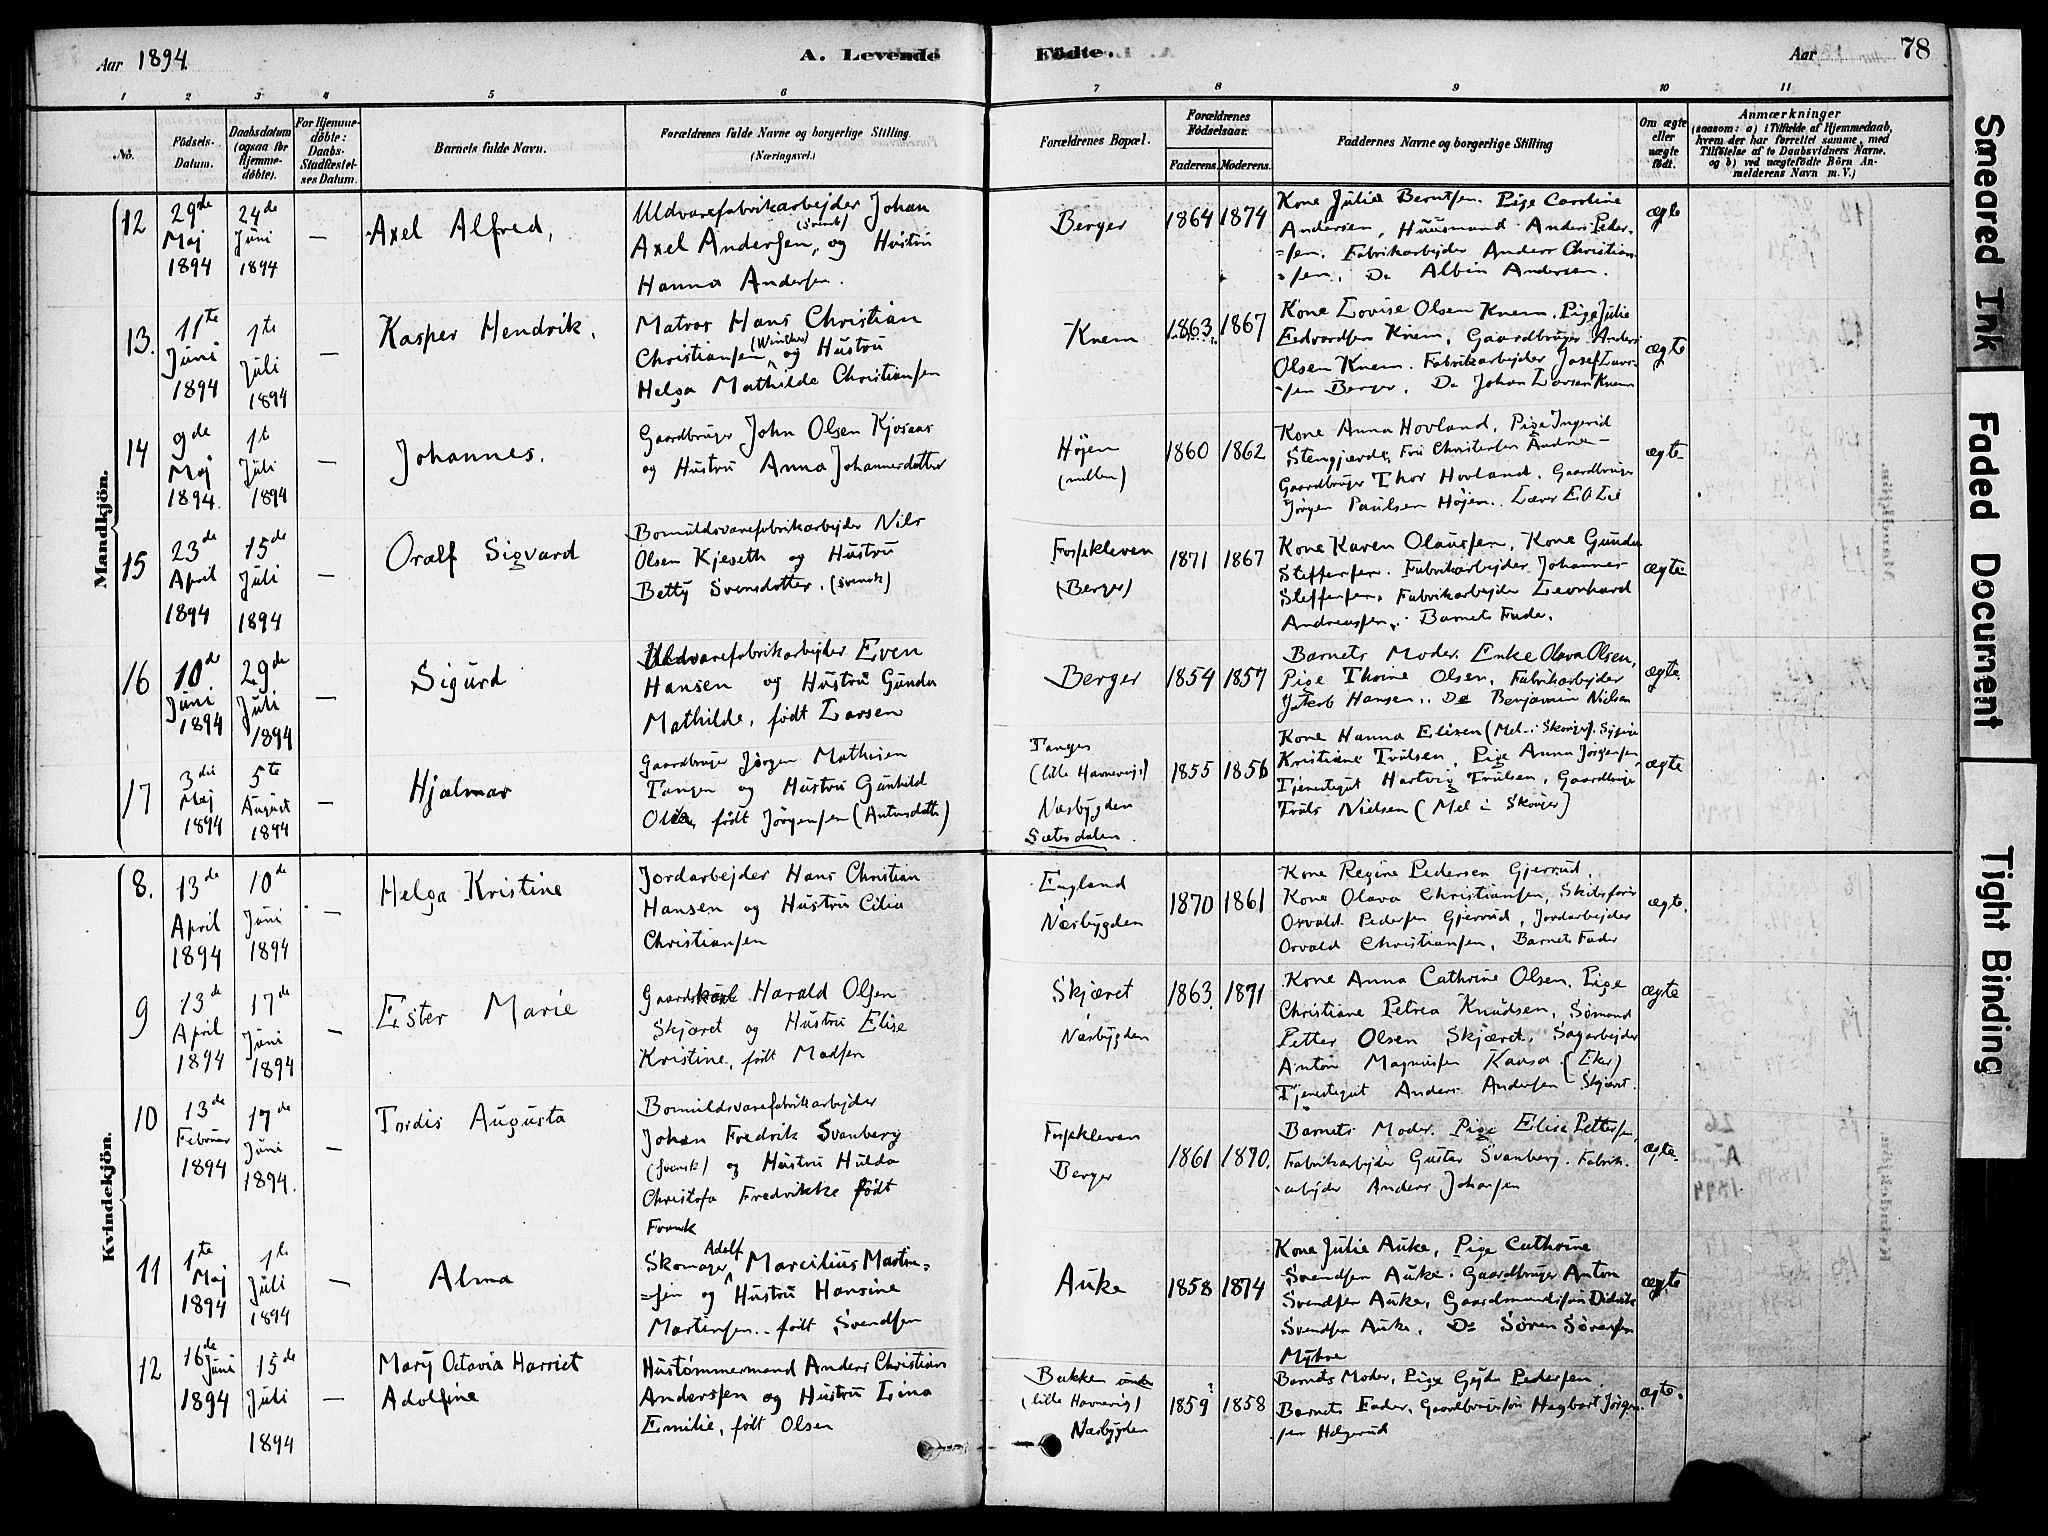 Aar 1894
A. Levende
Födte.
Aar
78
1 2 3 4 5 6 7 8 9 10 11
No.
Födsels-
Datum.
Daabsdatum
(ogsaa for
Hjemme-
döbte).
For Hjemme-
döbte:
Daabs-
Stadfæstel-
ses Datum.
Barnets fulde Navn.
Forældrenes fulde Navne og borgerlige Stilling
(Næringsvei.)
Forældrenes Bopæl.
Forældrenes
Födselsaar.
Faderens. Moderens.
Faddernes Navne og borgerlige Stilling
Om ægte
eller
uægte
födt.
Anmærkninger
(saasom: a) i Tilfælde af Hjemmedaab,
hvem der har forrettet samme, med
Tilföielse af to Daabsvidners Navne.
og b) ved uægtefödte Börn An-
melderens Navn m. V.)
Mandkjön.
12
29de
Maj
1894
24de
Juni
1894
—
Axel Alfred,
Uldvarefabrikarbejder Johan
Axel Andersen, (svensk) og Hustru
Hanna Andersen.
Berger
1864 1874
Kone Julie Berntsen. Pige Caroline
Andersen, Huusmand Anders Peder-
=sen. Fabrikarbejder Anders Christian-
=sen. Do Albin Andersen.
ægte
13.
11te
Juni
1894
1te
Juli
1894
—
Kasper Hendrik.
Matros Hans Christian
Christiansen (Winther) og Hustru
Helga Mathilde Christiansen
Knem
1863 1867
Kone Lovise Olsen Knem. Pige Julie
Edvardsen Knem, Gaardbruger Anders
Olsen Knem. Fabrikarbejder Josef Laur-
=sen Berger, Do Johan Larsen Knem
ægte
14
9de
Maj
1894.
1te
Juli
1894
—
Johannes.
Gaardbruger John Olsen Kjosaas
og Hustru Anna Johannesdatter
Höjen
(mellem)
1860 1862
Kone Anna Hovland, Pige Ingerid
Stengjærde, Fru Christensen
Gaardbruger Thor Hovland. Gaardbruger
Jörgen Paulsen Höjen. Lærer E O Lie
ægte
15
23de
April
1894
15de
Juli
1894
—
Oralf Sigvard
Bomuldsvarefabrikarbejder Nils
Olsen Kjeseth og Hustru
Betty Svensdatter. (svensk)
Fossekleven
(Berger)
1871 1867
Kone Karen Olaussen, Kone Gunda
Steffensen. Fabrikarbejder Johannes
Steffensen, Fabrikarbejder Leonhard
Andreassen, Barnets Fader.
ægte
16
10de
Juni
1894
29de
Juli
1894
—
Sigurd
Uldvarefabrikarbejder Even
Hansen og Hustru Gunda
Mathilde, född Larsen
Berger
1854 1857
Barnets Moder. Enke Olava Olsen,
Pige Thrine Olsen, Fabrikarbejder
Jakob Hansen,. Do Benjamin Nielsen
ægte.
17
3die
Maj
1894
5te
August
1894
—
Hjalmar
Gaardbruger Jörgen Mathisen
Tangen og Hustru Gunhild
Olea, född Jörgensen (Antonsdatter)
Tangen
(lille Havnevig)
Næsbygden
Sætesdalen.
1855 1856
Kone Hanna Elisen (Mel i Skoger). Sypige
Kristiane Trulsen, Pige Anna Jörgensen,
Tjenestegut Hartvig Trulsen, Gaardbruger
Truls Nielsen (Mel i Skoger)
ægte
Kvindekjön.
8.
13de
April
1894
10de
Juni
1894
—
Helga Kristine
Jordarbejder Hans Christian
Hansen og Hustru Cilia
Christiansen
England
Næsbygden
1870 1861
Kone Regine Pedersen Gjerrud.
Kone Olava Christiansen, Skibsförer
Osvald Pedersen Gjerrud, Jordarbejder
Osvald Christiansen, Barnets Fader
ægte.
9
13de
April
1894
17de
Juni
1894
—
Ester Marie
Gaardskarl Harald Olsen
Skjæret og Hustru Elise
Kristine, født Madsen
Skjæret
Næsbygden
1863. 1871
Kone Anna Cathrine Olsen, Pige
Christiane Petrea Knudsen, Sömand
Petter Olsen Skjæret, Sagarbejder
Anton Magnussen Kausa (Eker)
Tjenestegut Anders Andersen Skjæret.
ægte
10
13de
Februar
1894
17de
Juni
1894.
—
Tordis Augusta
Bomuldsvarefabrikarbejder
Johan Fredrik Svanberg
(svensk) og Hustru Hulda
Christofa Fredrikke født
Frank
Fossekleven
Berger
1861 1870.
Barnets Moder. Pige Elise Pettersen,
Fabrikarbejder Gustav Svanberg. Fabrik-
-arbejder Anders Johansen
ægte.
11
1te
Maj
1894
1te
Juli
1894
—
Alma
Skomager Adolf Marcilius Martin=
=sen og Hustru Hansine
Martinsen.. født Svendsen
Auke
1858 1874
Kone Julie Auke, Pige Cathrine
Svendsen Auke. Gaardbruger Anton
Svendsen Auke, Gaardmandssön Didrik
Svendsen Auke. Do Sören Sörensen
Myhre
ægte
12
16de
Juni
1894
15de
Juli
1894
—
Mary Octavia Harriet
Adolfine
Hustömmermand Anders Christian
Anderssen og Hustru Lina
Emilie, født Olsen
Bakken
(lille Havnevig)
Næsbygden
1859? 1858
Barnets Moder, Pige Gejda Pedersen.
Barnets Fader, Gaardbrugersön Hagbart Jörgen-
sen Helgerud
ægte.
Smeared Ink
Faded Document
Tight Binding